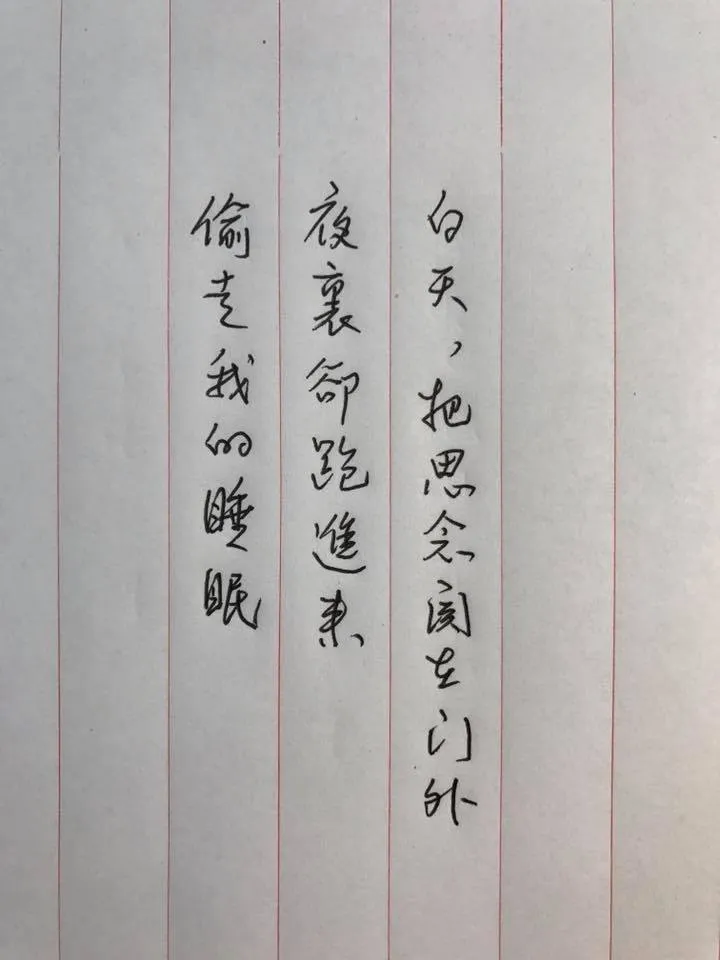 白天，把思念関在门外
夜裏卻跑進来
偷走我的睡眠